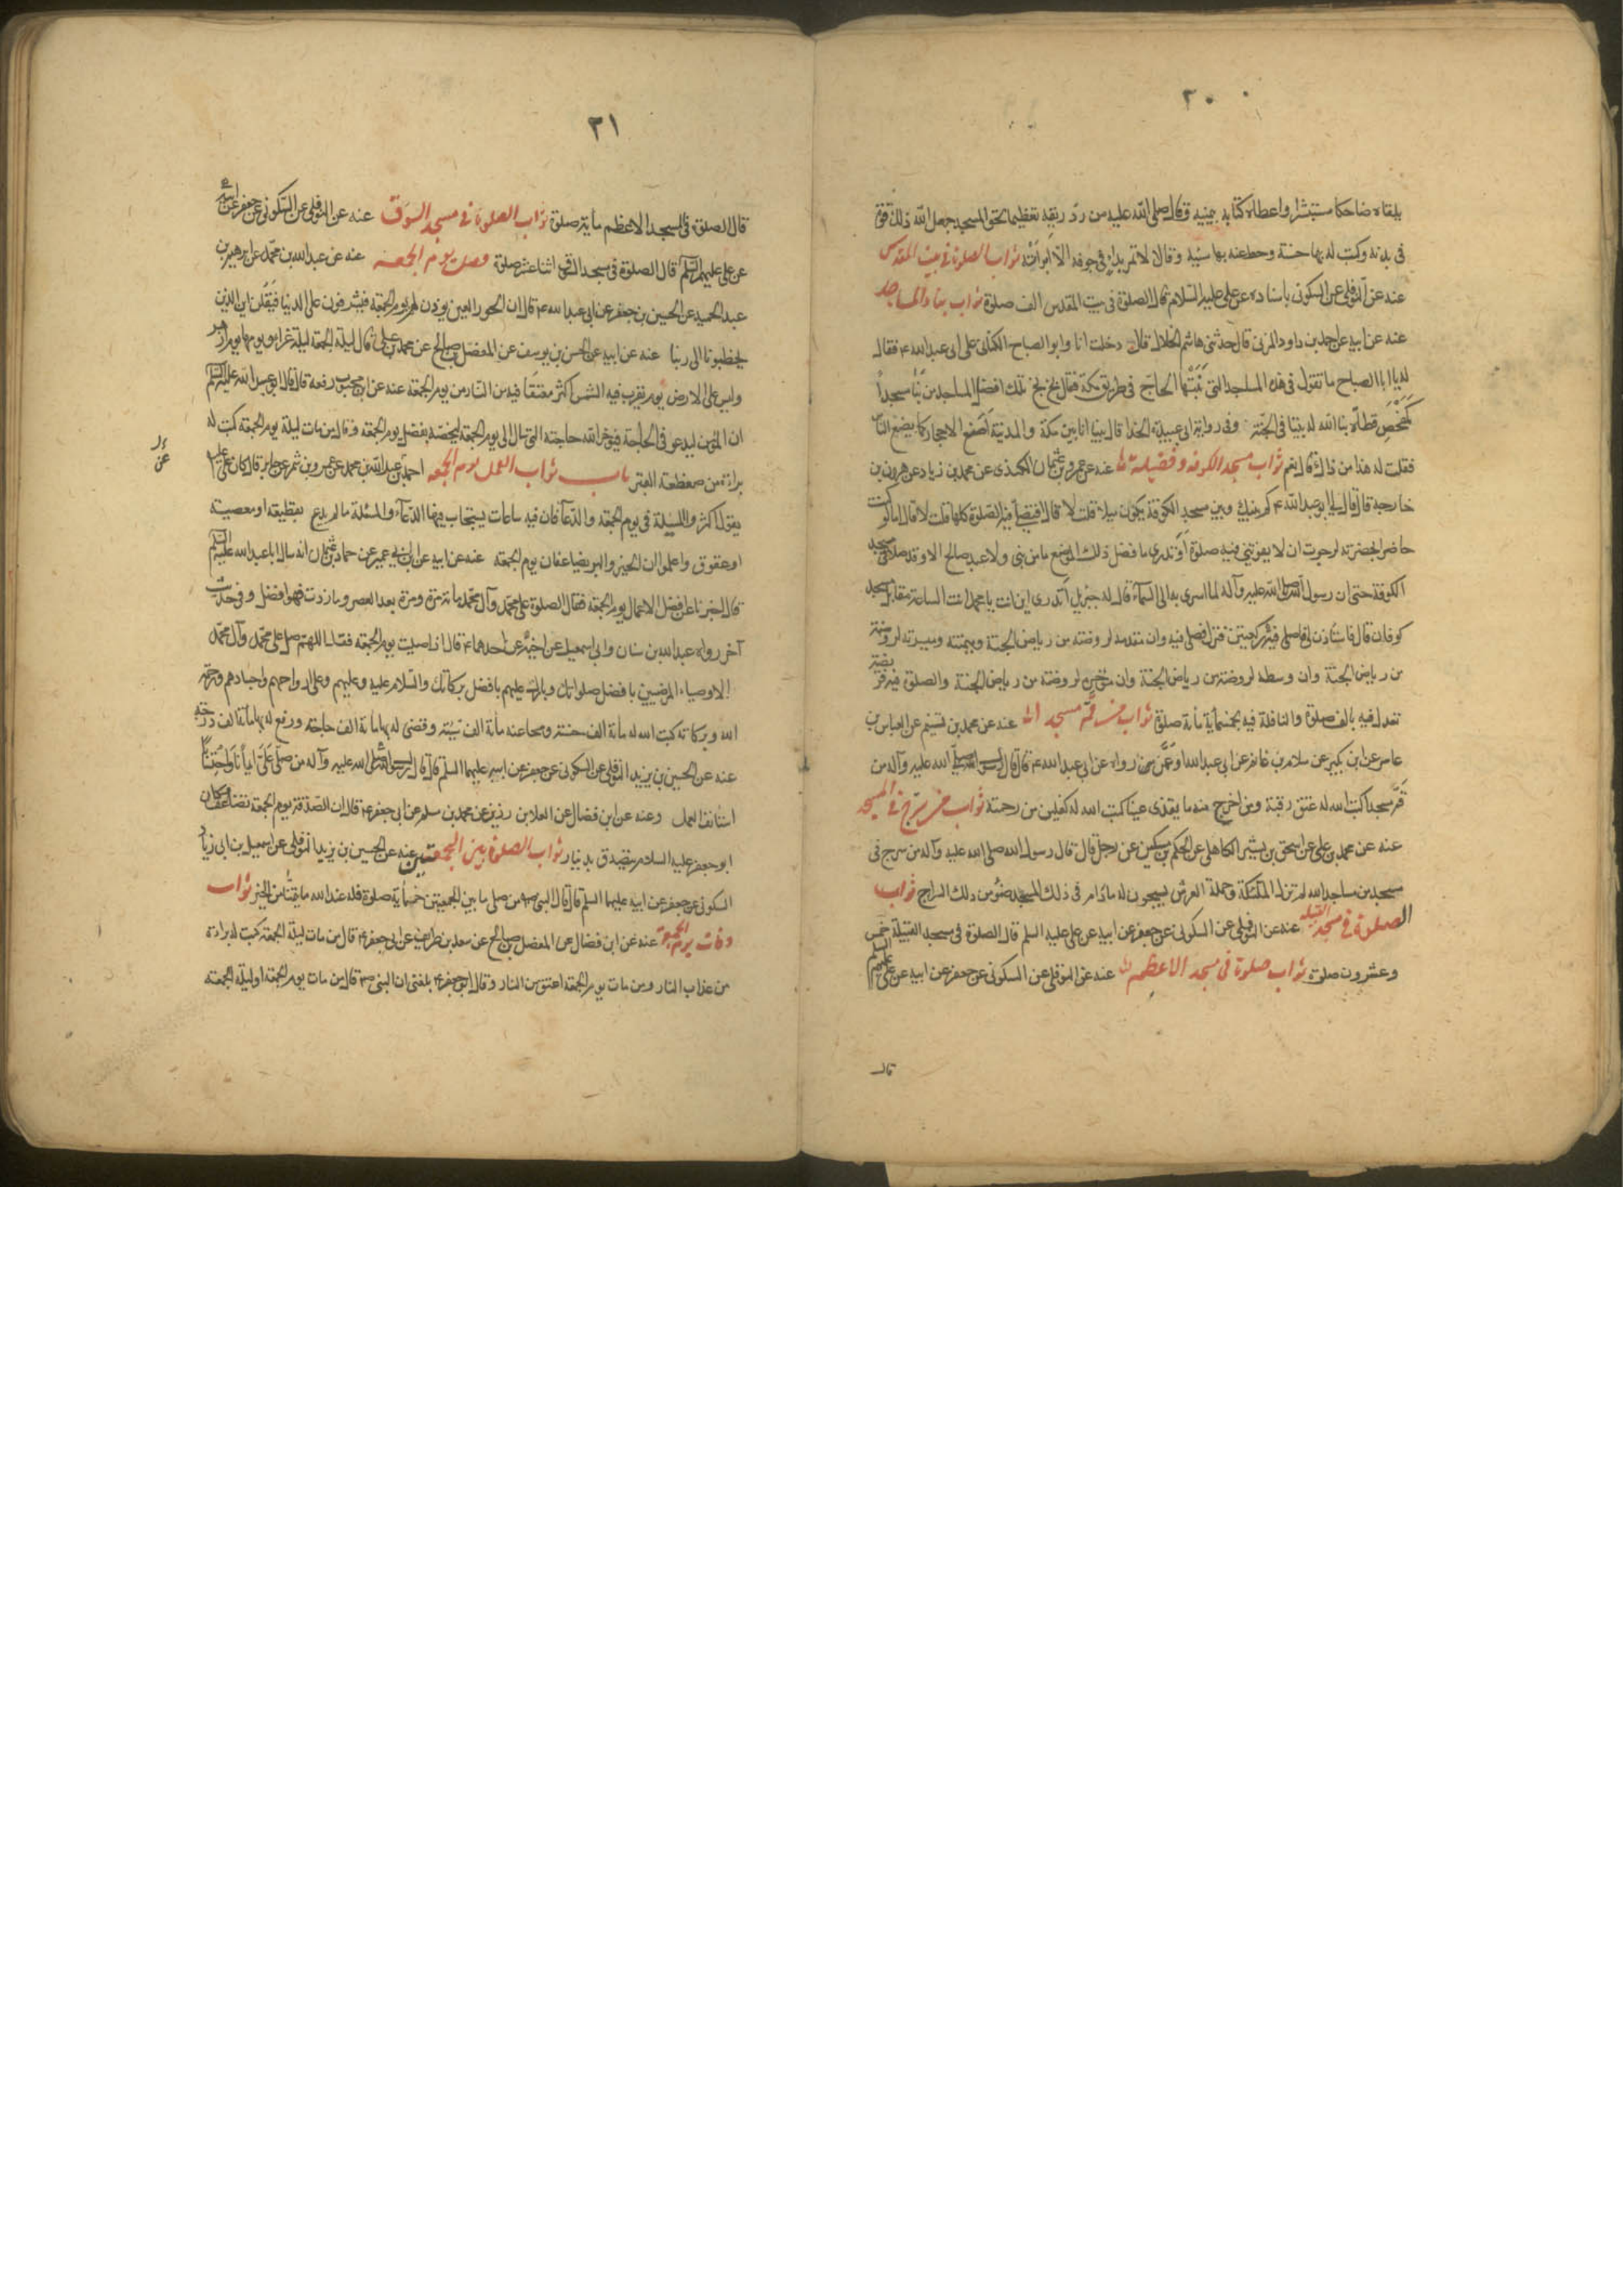 ٣٠
يلقاه ضاحكا مستبشرا واعطاه كتابه بيمينه وقال صلى الله عليه من ردّ ريقه تعظيما لحق المسجد جعل الله ذلك قوة
فى بدنه وكتب له بها حسنة وحط عنه بها سيئة وقال لا تمر بداء فى جوفه الا ابرأته ثواب الصلوة فى بيت المقدس
عنه عن النوفلى عن السكونى باسناده عن على عليه السلام قال الصلوة فى بيت المقدس الف صلوة ثواب بناء المساجد
عنه عن ابيه عن احمد بن داود المزنى قال حدثنى هاشم الخلال قال دخلت انا وابو الصباح الكنانى على ابى عبدالله ع فقال
له يا ابا الصباح ما تقول فى هذه المساجد التى بنتها الحاج فى طريق مكة فقال بخ بخ تلك افضل المساجد من بنا مسجداً
كمفحص قطاة بنا الله له بيتا فى الجنة وفى رواية ابى عبيدة الحذا قال بينا انا بين مكة والمدنية اضع الاحجار كما يضع الناس
فقلت له هذا من ذاك قال نعم ثواب مسجد الكوفه وفضيلته عنه عن عمرو بن عثمان الكندى عن محمد بن زياد عن هرون بن
خارجه قال قال لى ابو عبد الله ع كم بينك وبين مسجد الكوفة يكون ميلا قلت لا قال افتصلى فيه الصلوة كلها قلت لا قال اما لو كنت
حاضرا بحضرته لرجوت ان لا يفوتنى فيه صلوة أو تدرى ما فضل ذلك الموضع ما من نبى ولا عبد صالح الا وقد صلى فى مسجد
الكوفة حتى ان رسول الله صلى الله عليه وآله لما اسرى به الى السمآء قال له جبريل اتدرى اين انت يا محمد انت الساعة مقابل مسجد
كوفان قال فاستاذن لى فاصلى فيه ركعتين فنزل فصلى فيه وان مقدمه لروضة من رياض الجنة وميمنته وميسرته لروضة
من رياض الجنة وان وسطه لروضة من رياض الجنة وان مؤخره لروضة من رياض الجنة والصلوة فيه فريضة
تعدل فيه بالف صلوة والنافلة فيه بخمسمأية مأية صلوة ثواب من قمّ مسجد الله عنه عن محمد بن تسنيم عن العباس بن
عامر عن ابن بكير عن سلام بن غانم عن ابى عبد الله او عمن رواه عن ابى عبد الله ع قال قال رسول الله صلى الله عليه وآله من
قمّ مسجدا كتب الله له عتق رقبة ومن اخرج منه ما يقذى عينا كتب الله له كفلين من رحمته ثواب من سرج فى المسجد
عنه عن محمد بن على عن اسحق بن يشير الكاهلى عن الحكم بن مسكين عن رجل قال قال رسول الله صلى الله عليه وآله من سرج فى
مسجد من مساجد الله لم تزل الملئكة وحملة العرش يسبحون له ما دام فى ذلك المسجد ضوء من ذلك السراج ثواب
الصلوة فى مسجد القبيلة عنه عن النوفلى عن السكونى عن جعفر عن ابيه عن على عليه السلم قال الصلوة فى مسجد القبيلة خمس
وعشرون صلوة ثواب صلوة فى مسجد الاعظم عنه عن النوفلى عن السكونى عن جعفر عن ابيه عن على عليهم السلم
قال
٣١
قال الصلوة فى المسجد الاعظم مأية صلوة ثواب الصلوة فى مسجد السوق عنه عن النوفلى عن السكونى عن جعفر عن ابيه
عن على عليهم السلم قال الصلوة فى مسجد السوق اثنا عشر صلوة فضل يوم الجمعه عنه عن عبد الله بن محمد عن ابرهيم بن
عبد الحميد عن الحسين بن جعفر عن ابى عبد الله ع قال ان الحور العين يوذن لهم يوم الجمعة فيشرفون على الدنيا فيقلن اين الذين
يخطبونا الى ربنا عنه عن ابيه عن الحسن بن يوسف عن المفضل بن صالح عن محمد بن على ع قال ليلة الجمعة ليلة غراء ويومها يوم ازهر
وليس على الارض يوم تغرب فيه الشمس اكثر معتقا فيه من النار من يوم الجمعة عنه عن ابن محبوب رفعه قال قال ابو عبد الله عليه السلم
ان المؤمن ليدعو فى الحاجة فيؤخر الله حاجته التى سال الى يوم الجمعة ليخصه بفضل يوم الجمعة وقال من مات ليلة يوم الجمعة كتب له
براءة من ضغطة القبر باب ثواب العمل يوم الجمعه احمد بن عبد الله عن محمد عن عمرو بن شمر عن جابر قال كان على
يقول اكثروا المسئلة فى يوم الجمعة والدعآ فان فيه ساعات يستجاب فيها الدعآء والمسئلة ما لم يدع بقطيعة او معصية
او عقوق واعلموا ان الخير والبر يضاعفان يوم الجمعة عنه عن ابيه عن ابن ابى عمير عن حماد بن عثمان انه سال ابا عبد الله عليه السلم
قال اخبرنا عن افضل الاعمال يوم الجمعة فقال الصلوة على محمد وآل محمد مائة مرة ومرة بعد العصر وما زدت فهو افضل وفى حديث
آخر رواه عبد الله بن سنان وابى اسمعيل عن اخيه عن احدهما ع قال اذا صليت يوم الجمعة فقل اللهم صل على محمد وآل محمد
الاوصياء المرضيين بافضل صلواتك وبارك عليهم بافضل بركاتك والسلام عليه وعليهم وعلى ارواحهم واجسادهم ورحمة
الله وبركاته كتب الله له مأة الف حسنة ومحا عنه مأة الف سيئة وقضى له بها مأة الف حاجة ورفع له بها مأة الف درجة
عنه عن الحسين بن يزيد النوفلى عن السكونى عن جعفر عن ابيه عليهما السلم قال قال رسول الله صلى الله عليه وآله من صلى على ايمانا واحتسابا
استانف العمل وعنه عن ابن فضال عن العلا بن رذين عن محمد بن مسلم عن ابى جعفر ع قال ان الصدقة يوم الجمعة تضاعف وكان
ابو جعفر عليه السلام يتصدق بدينار ثواب الصلوة بين الجمعتين عنه عن الحسين بن يزيد النوفلى عن اسمعيل بن ابى زياد
السكونى عن جعفر عن ابيه عليهما السلم قال قال النبى ص من صلى ما بين الجمعتين خمسمأية صلوة فله عند الله ما يتمنا من الخير ثواب
وفات يوم الجمعة عنه عن ابن فضال عن المفضل بن صالح عن سعد بن طريف عن ابى جعفر ع قال من مات ليلة الجمعة كتب له براءة
من عذاب النار ومن مات يوم الجمعة اعتق من النار وقال ابو جعفر ع بلغنى ان النبى ص قال من مات يوم الجمعة او ليلة الجمعة